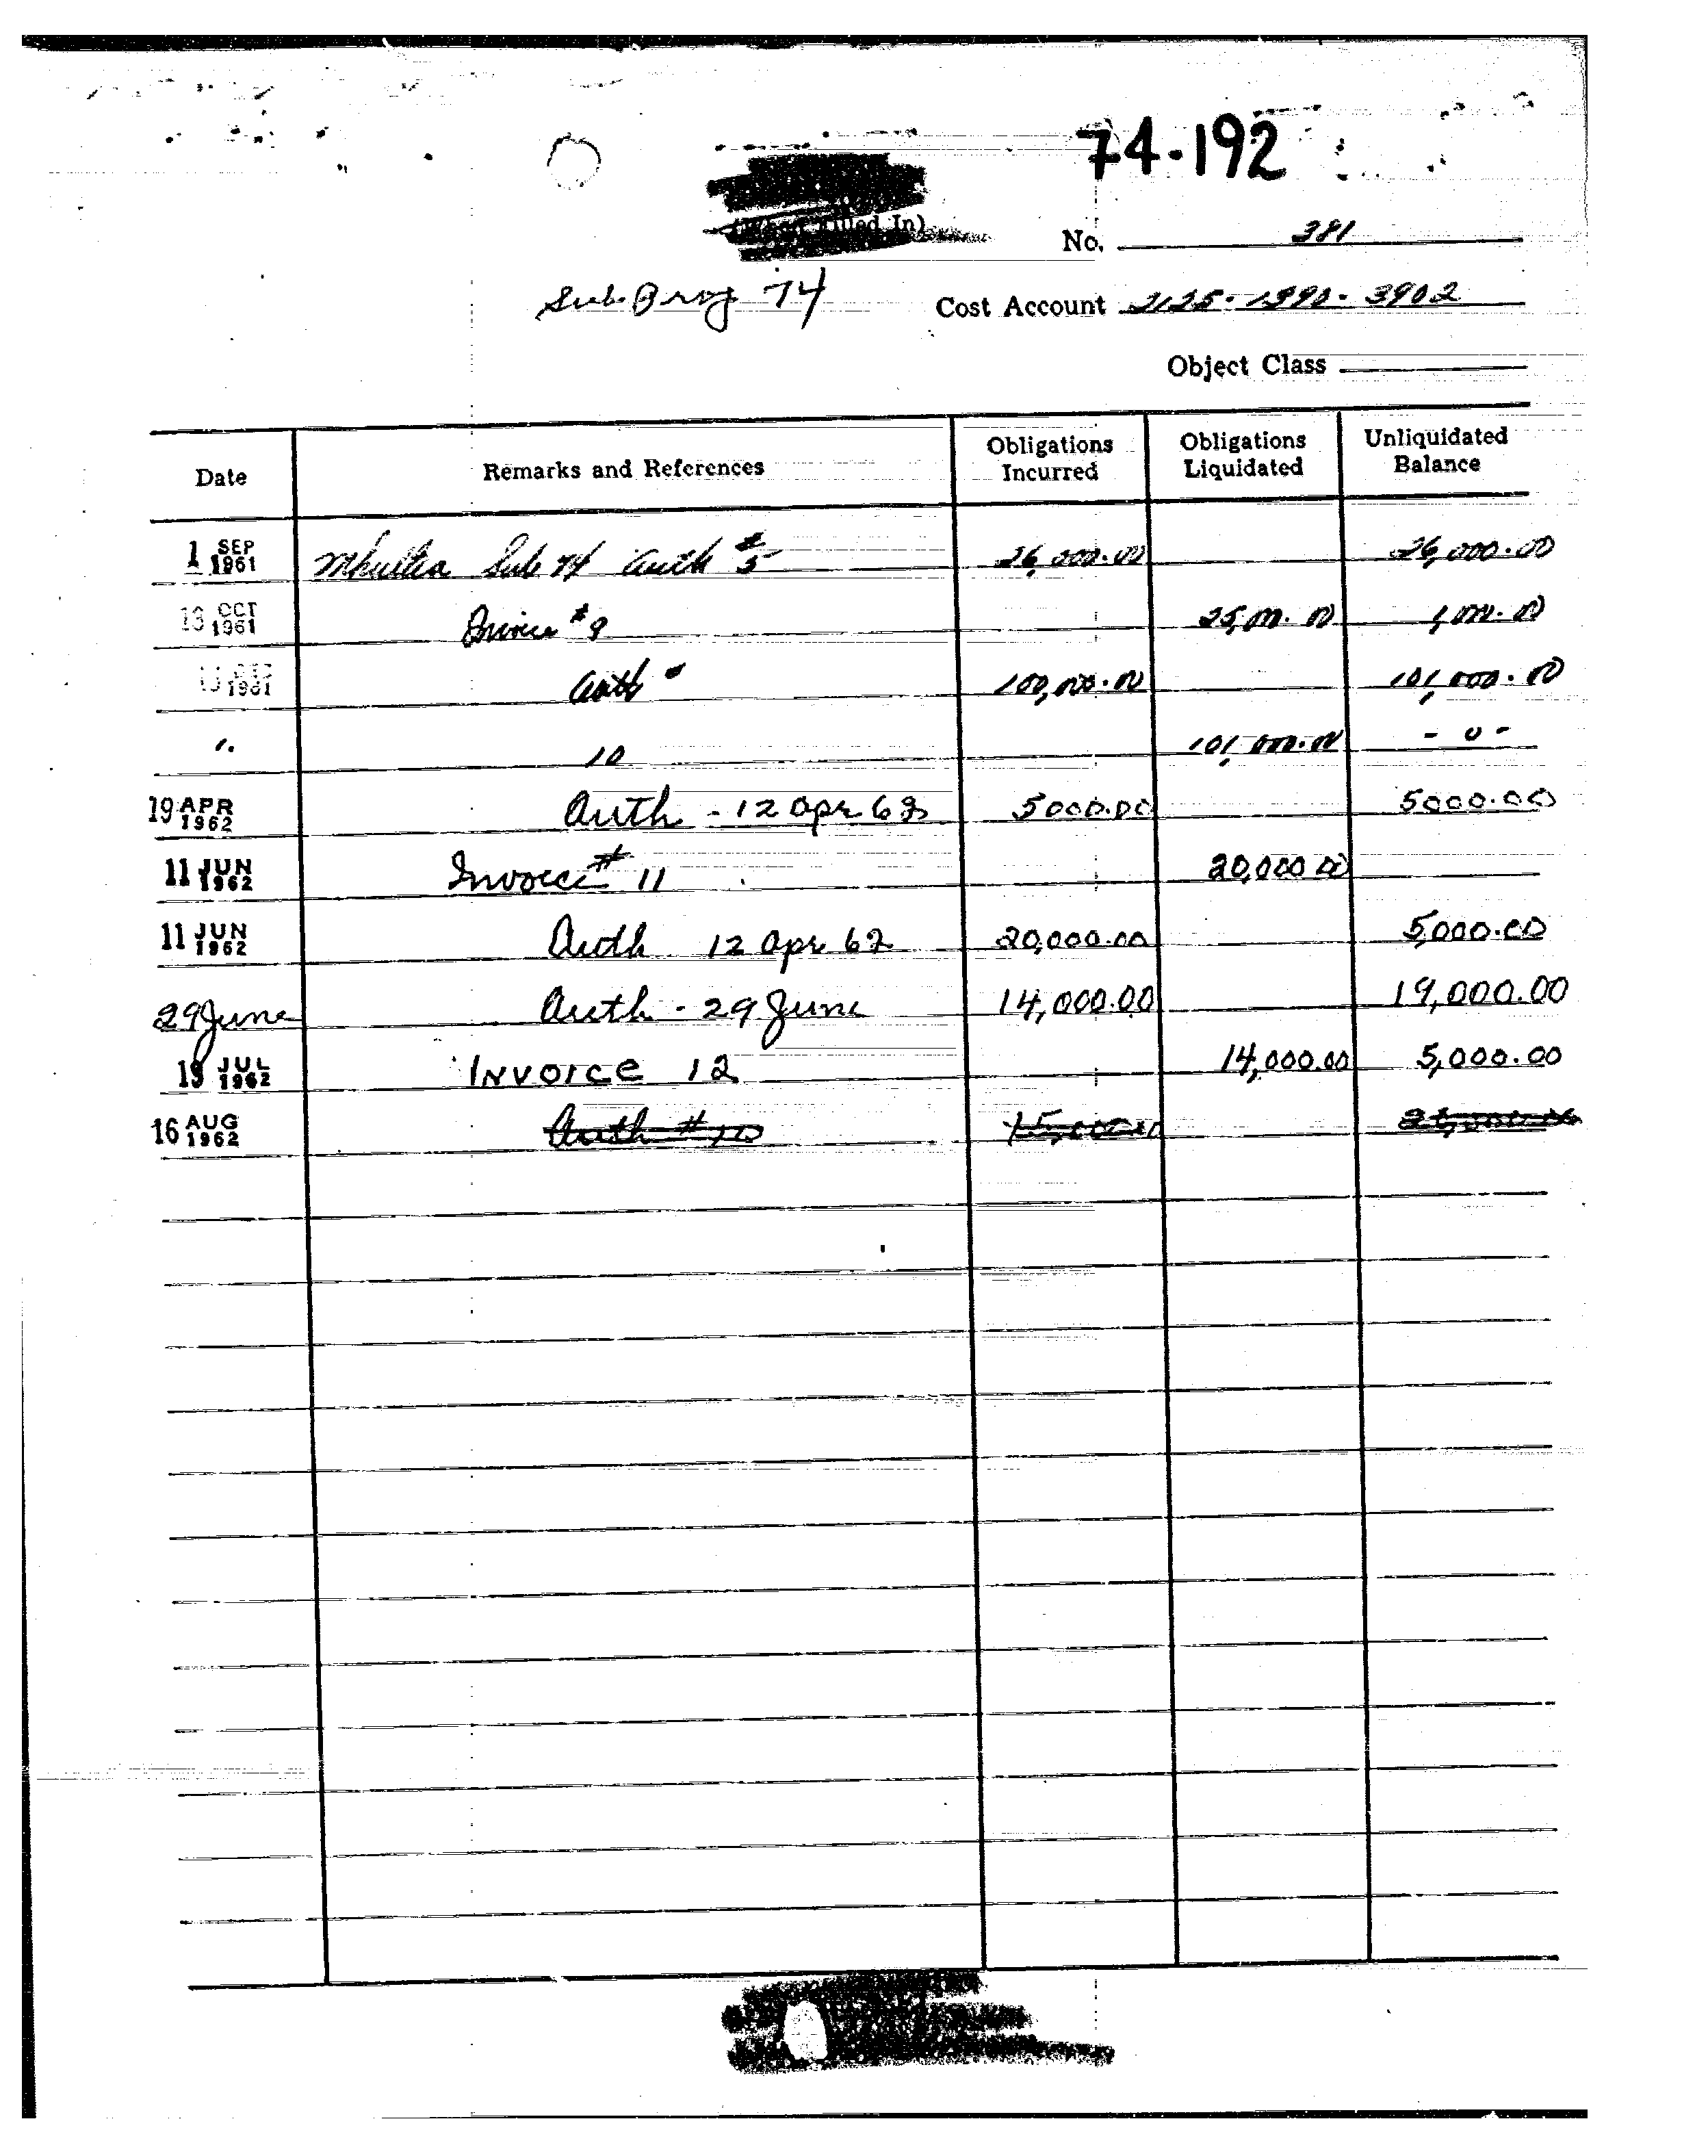 74-192
(When Filled In)
No. 381
Sub Proj 74 Cost Account 2125-1390-3902
Object Class
Date Remarks and References Obligations Incurred Obligations Liquidated Unliquidated Balance
1 SEP 1961 Mkultra Sub 74 Auth #5 26,000.00 26,000.00
13 OCT 1961 Invoice #9 25,000.00 1,000.00
1961 Auth 100,000.00 101,000.00
". 10 101,000.00 - 0 -
19 APR 1962 Auth - 12 Apr 62 5000.00 5000.00
11 JUN 1962 Invoice # 11 20,000.00
11 JUN 1962 Auth 12 Apr 62 20,000.00 5,000.00
29 June Auth - 29 June 14,000.00 19,000.00
19 JUL 1962 Invoice 12 14,000.00 5,000.00
16 AUG 1962 Auth # 10 15,000.00